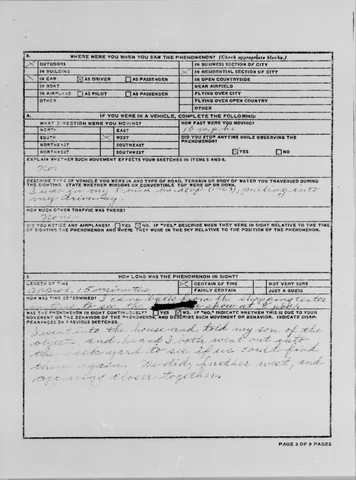 WHERE WERE YOU WHEN YOU SAW THE PHENOMENON? (Check appropriate blocks.)
OUTDOORS
IN BUSINESS SECTION OF CITY
IN BUILDING
IN RESIDENTIAL SECTION OF CITY
IN CAR
AS DRIVER
AS PASSENGER
IN OPEN COUNTRYSIDE
IN BOAT
NEAR AIRFIELD
IN AIRPLANE
AS PILOT
AS PASSENGER
FLYING OVER CITY
OTHER
FLYING OVER OPEN COUNTRY
OTHER
IF YOU WERE IN A VEHICLE, COMPLETE THE FOLLOWING:
WHAT DIRECTION WERE YOU MOVING?
HOW FAST WERE YOU MOVING?
NORTH
EAST
SOUTH
WEST
DID YOU STOP ANYTIME WHILE OBSERVING THE PHENOMENON?
NORTHEAST
SOUTHEAST
NORTHWEST
SOUTHWEST
YES
NO
EXPLAIN WHETHER SUCH MOVEMENT EFFECTS YOUR SKETCHES IN ITEMS 5 AND 6.
No.
DESCRIBE TYPE OF VEHICLE YOU WERE IN AND TYPE OF ROAD, TERRAIN OR BODY OF WATER YOU TRAVERSED DURING
THE SIGHTING. STATE WHETHER WINDOWS OR CONVERTIBLE TOP WERE UP OR DOWN.
I was in my hardtop pulling into
my driveway.
HOW MUCH OTHER TRAFFIC WAS THERE?
None
DID YOU NOTICE ANY AIRPLANES? YES NO. IF "YES," DESCRIBE WHEN THEY WERE IN SIGHT RELATIVE TO THE TIME
OF SIGHTING THE PHENOMENON AND WHERE THEY WERE IN THE SKY RELATIVE TO THE POSITION OF THE PHENOMENON.
HOW LONG WAS THE PHENOMENON IN SIGHT?
LENGTH OF TIME
CERTAIN OF TIME
NOT VERY SURE
approx. 15 minutes
FAIRLY CERTAIN
JUST A GUESS
HOW WAS TIME DETERMINED? I came back from the shopping center
in time to see the show at
WAS THE PHENOMENON IN SIGHT CONTINUOUSLY? YES NO. IF "NO," INDICATE WHETHER THIS IS DUE TO YOUR
MOVEMENT OR THE BEHAVIOR OF THE PHENOMENON, AND DESCRIBE SUCH MOVEMENT OR BEHAVIOR. INDICATE DISAP-
PEARANCES ON PREVIOUS SKETCHES.
I went into the house and told my son of the
objects, and he and I both went out into
the back yard to see if we could find
them again. We did, further west, and
appearing closer together.
PAGE 3 OF 5 PAGES